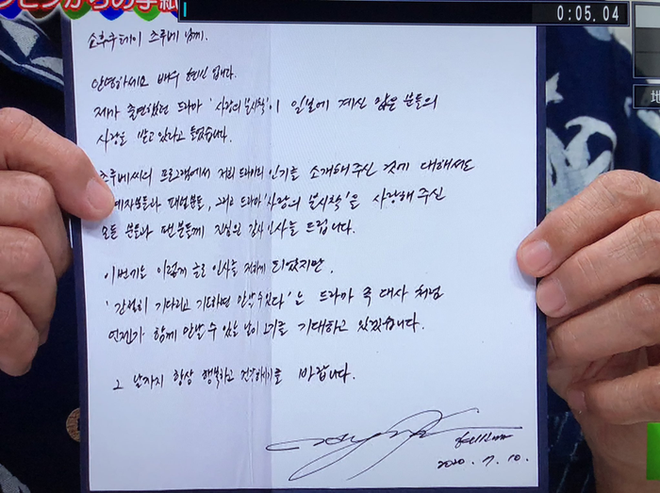 ンビンからの手紙
0:05.04
地
쇼후쿠테이 츠루베 님께.
안녕하세요 배우 현빈 입니다.
제가 출연했던 드라마 '사랑의 불시착'이 일본에 계신 많은 분들의
사랑을 받고 있다고 들었습니다.
츠루베씨의 프로그램에서 저희 드라마의 인기를 소개해 주신 것에 대해서도
그리고 드라마 '사랑의 불시착'을 사랑해 주신
모든 분들과 팬분들께 진심의 감사 인사를 드립니다.
이번에는 이렇게 글로 인사를 전하게 되었지만,
'간절히 기다리고 기다하면 만날 수 있다'는 드라마 속 대사 처럼
언젠가 함께 만날 수 있는 날이 오기를 기대하고 있겠습니다.
그 날까지 항상 행복하고 건강하시기를 바랍니다.
2020. 7. 10.